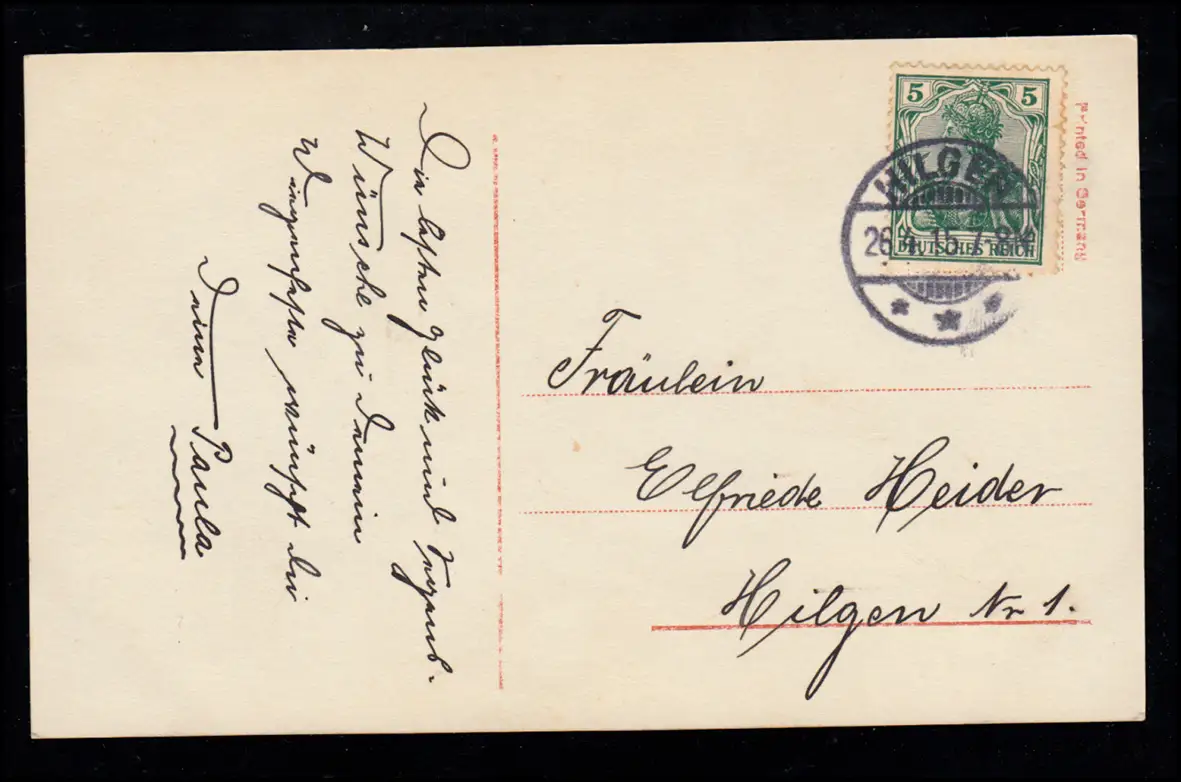 Die besten Glück und Segens-
Wünsche zu Deinem
Wiegenfeste wünscht Dir
Deine Paula
5 5
DEUTSCHES REICH
HILGEN
26.4.15.7-8N
Printed in Germany
Fräulein
Elfriede Heider
Hilgen Nr 1.